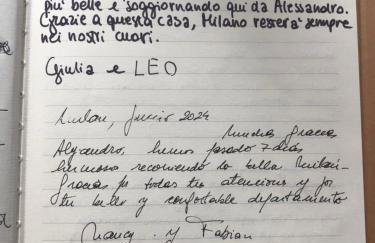 più belle e soggiornando qui da Alessandro.
Grazie a questa casa, Milano resterà sempre
nei nostri cuori.
Giulia e LEO
Milan, Junio 2024
Muchas gracias
Alejandro, hemos pasado 7 días
hermosos recorriendo la bella Milán.
Gracias por todas tus atenciones y por
tu bello y confortable departamento
Nancy y Fabian